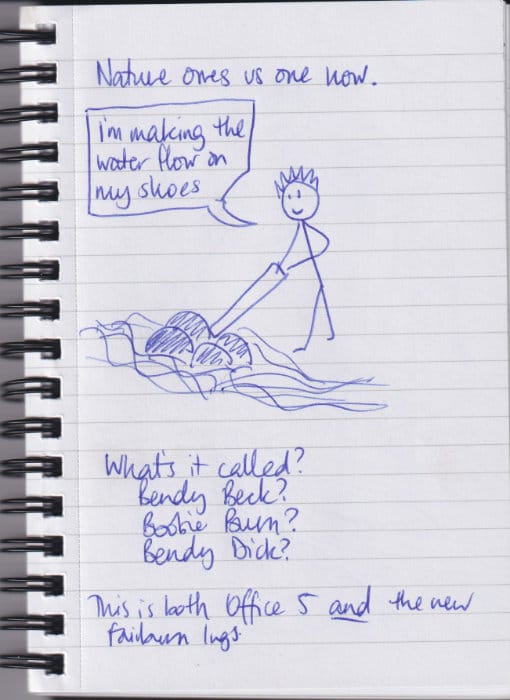 Nature owes us one now.
i'm making the
water flow on
my shoes
What's it called?
Bendy Beck?
Boobie Burn?
Bendy Dick?
This is both Office 5 and the new
Fairburn Ings.